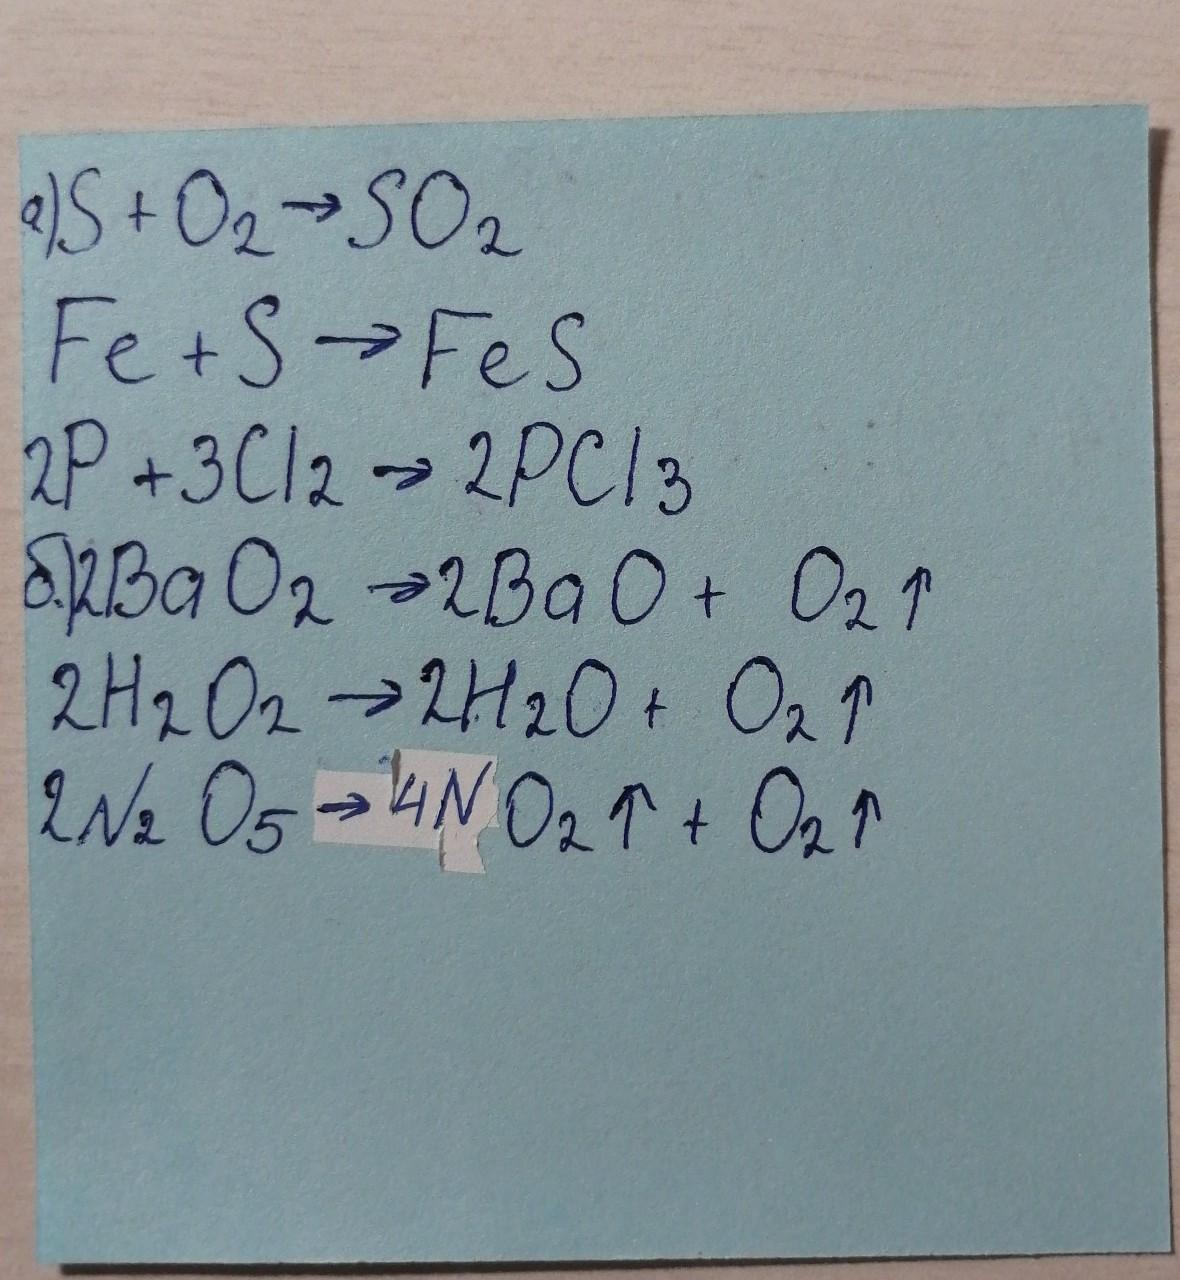 а) S + O₂ → SO₂
Fe + S → FeS
2P + 3Cl₂ → 2PCl₃
б.) 2BaO₂ → 2BaO + O₂↑
2H₂O₂ → 2H₂O + O₂↑
2N₂O₅ → 4NO₂↑ + O₂↑